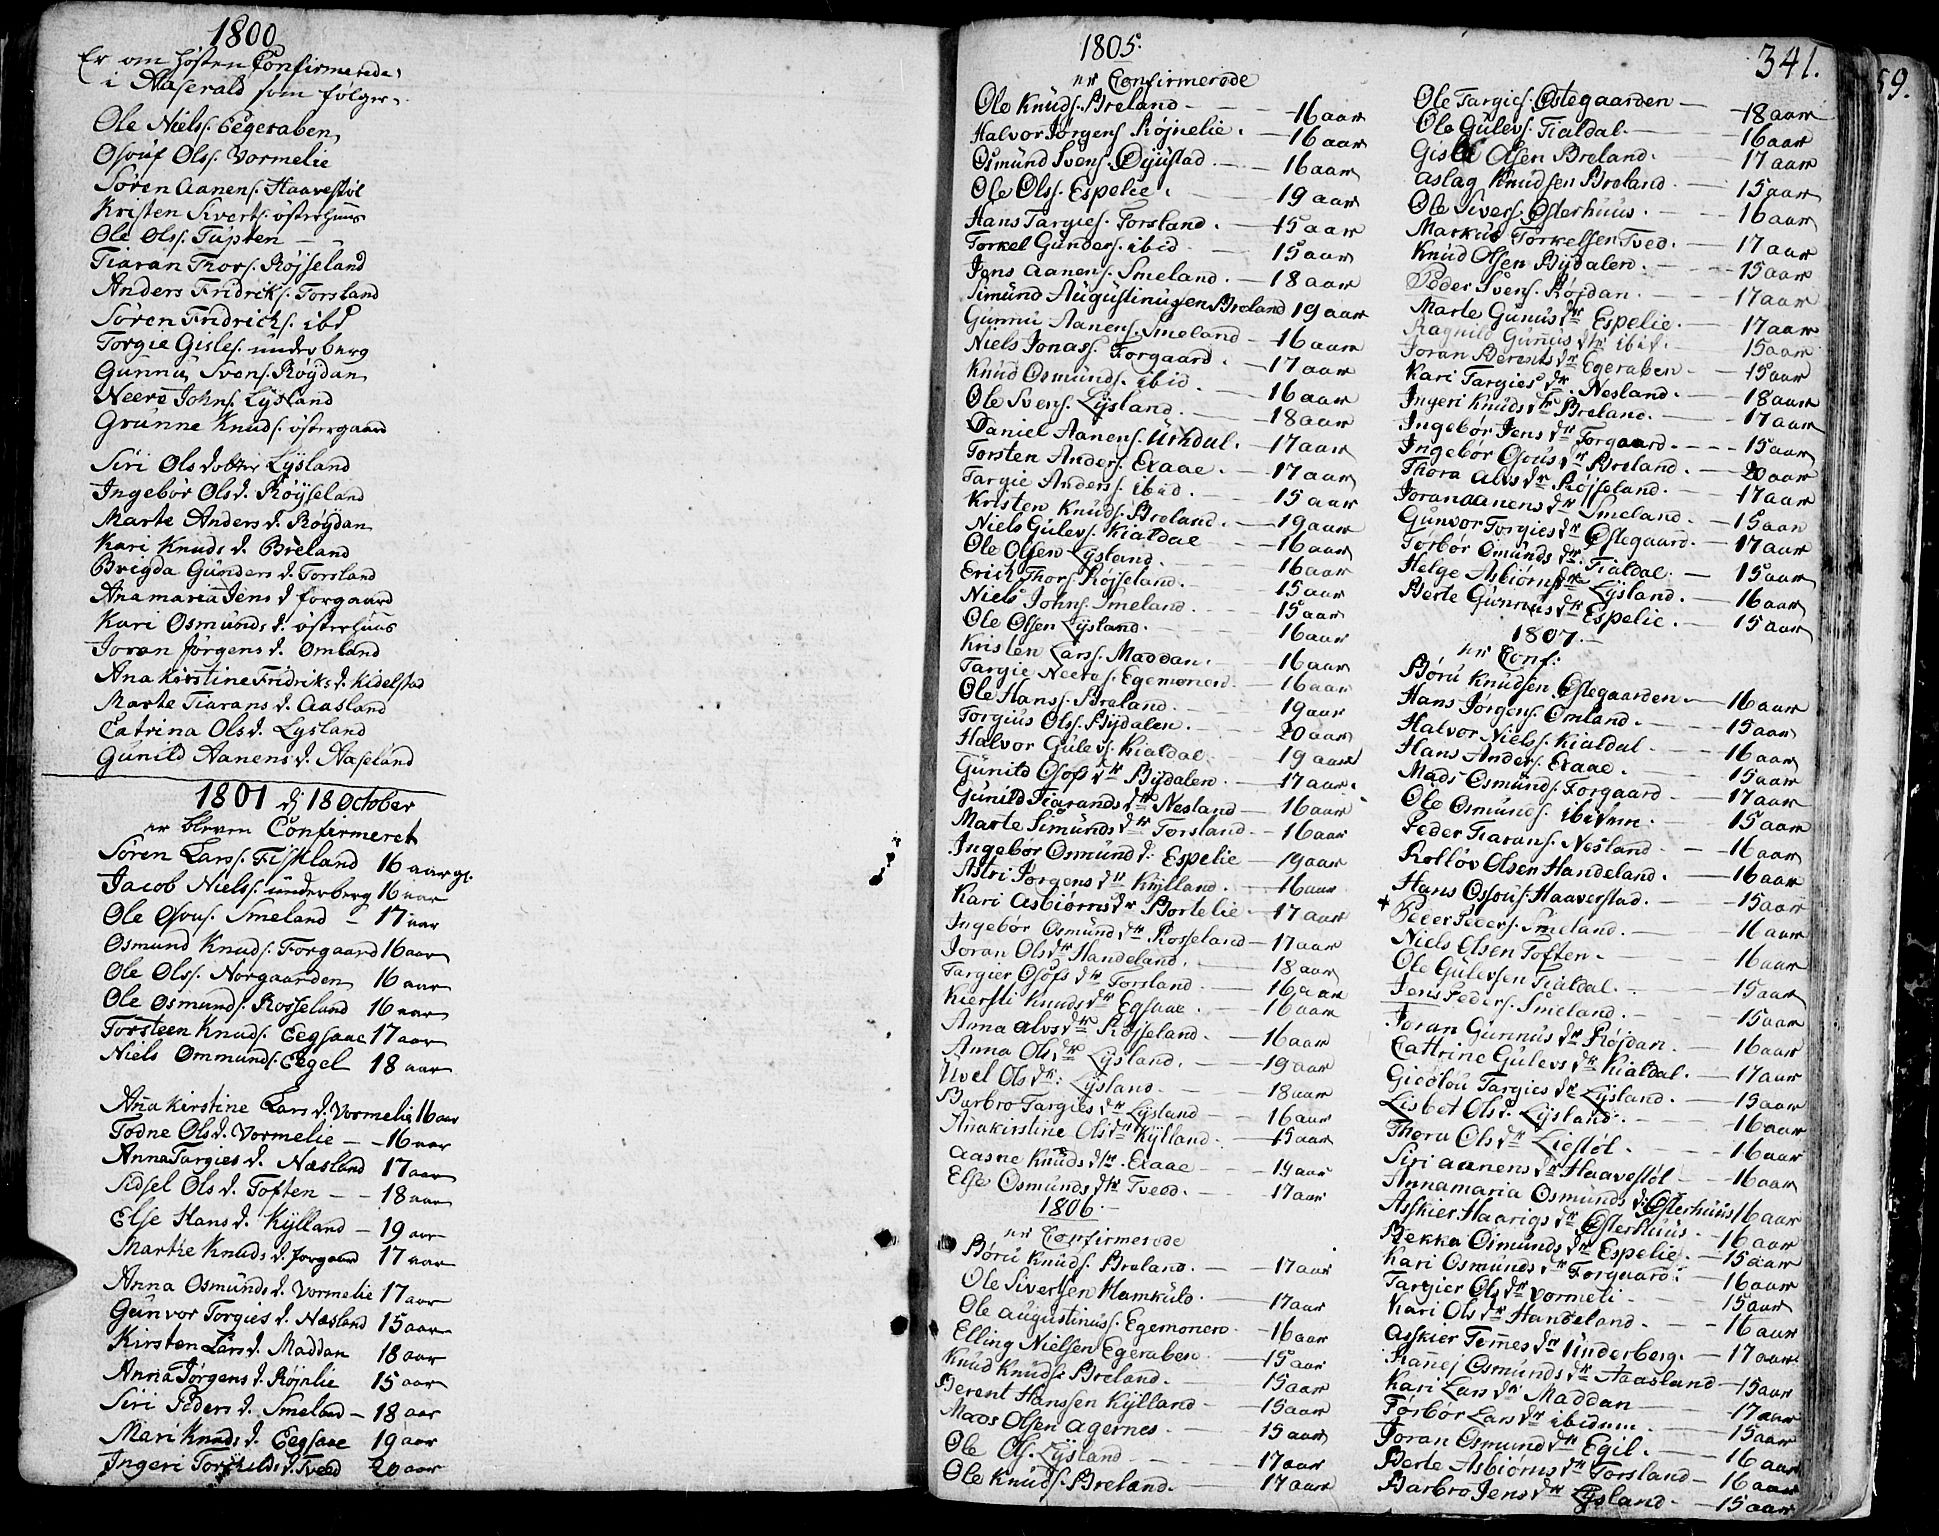 1800
Er om høsten Confirmerede
i Aaserald som følger
Ole Niels: Eegeraben
Osouf Ols: Vormelie
Søren Aanens: Haavestøl
Kristen Siverts: østerhuus
Ole Ols: Tupten
Tiaran Thors: Røjseland
Anders Fridriks: Torsland
Søren Fridrichs: ibd
Torgie Gisles: underberg
Gunnu Svens: Røydan
Neere Johns: Lysland
Grunne Knuds: østergaard
Siri Ols dotter Lysland
Ingebør Ols d. Røyseland
Marte Anders d. Røydan
Kari Knuds d. Breland
Brigda Gunders d. Torsland
Ana maria Jens d forgaard
Kari Osmunds d. østerhuus
Joran Jørgens d. Omland
Ana Kirstine Fridriks d. Kidelstad
Marte Tiarans d. Aasland
Catrina Ols d. Lysland
Gunild Aanens d. Aaseland
1801 dj 18 October
er bleven Confirmeret
Søren Lars: Fiskland 16 aar gl.
Jacob Niels: underberg 16 aar
Ole Osous: Smeland - 17 aar
Osmund Knuds: Forgaard 16 aar
Ole Ols: Norgaarden 16 aar
Ole Osmunds: Rosseland 16 aar
Torsteen Knuds: Eegsaae 17 aar
Niels Ommunds: Eegel 18 aar
Ana Kirstine Lars d. Vormelie 16 aar
Todne Ols d. Vormelie - 16 aar
Anna Targies d. Næsland 17 aar
Sidsel Ols d. Toften - - 18 aar
Else Hans d. Kylland - 19 aar
Marthe Knuds d. forgaar 17 aar
Anna Osmunds d. Vormelie 17 aar
Gunvor Torgies d. Næsland 15 aar
Kirsten Lars d. Maddan 18 aar
Anna Jørgens d. Røjnlie 15 aar
Siri Peders d. Smeland - 18 aar
Mari Knuds d. Eegsaae 19 aar
Ingeri Torkilds d. Tveed 20 aar
1805.
er Confirmerede
Ole Knuds: Breland - 16 aar
Halvor Jørgens: Røjnelie. - 16 aar
Osmund Svens: Dyustad. - 16 aar
Ole Ols: Espelie. - 19 aar
Hans Targies: Torsland. - 15 aar
Torkel Gunders: ibid. - 15 aar
Jens Aanens: Smeland. - 18 aar
Simund Augustinusen Breland 19 aar
Gunnu Aanens: Smeland - 16 aar
Niels Jonas: Forgaard. - 17 aar
Knud Osmunds: ibid. - 16 aar
Ole Svens: Lysland. - 18 aar
Daniel Aanens: Urdal. - 17 aar
Torsten Anders: Exaae. - 17 aar
Targie Anders: ibid. - 15 aar
Kristen Knuds: Breland. - 19 aar
Niels Gulevs: Kialdal - 16 aar
Ole Olsen Lysland. - 16 aar
Erich Thors: Røjseland. - 15 aar
Niels Johns: Smeland. - 15 aar
Ole Olsen Lysland. - 16 aar
Kristen Lars: Maddan. - 16 aar
Targie Neeros: Egemonen. - 16 aar
Ole Hans: Breland. - 19 aar
Torgius Ols: Bydalen. - 20 aar
Halvor Gulevs: Kialdal. - 19 aar
Gunild Osofs dtr Bydalen. - 17 aar
Gunild Tiarands dtr Nesland - 16 aar
Marte Simunds dtr Torsland. - 16 aar
Ingebor Osmund d. Espelie - 19 aar
Astri Jørgens dtr Kylland. - 16 aar
Kari Asbiørns dtr Bortelie. - 17 aar
Ingebør Osmund dtr Rosseland - 17 aar
Joran Ols dtr Handeland. - 18 aar
Targier Osofs dtr Torsland. - 16 aar
Kiersti Knuds dtr Egsaae. - 16 aar
Anna Alvs dtr Røjseland. - 16 aar
Anna Ols dtr Lysland. - 19 aar
Uvel Ols dtr: Lysland. - 18 aar
Barbro Targies dtr Lysland - 16 aar
Anakirstine Ols dtr Kylland. - 15 aar
Aasne Knuds dtr. Exaae - 14 aar
Else Osmunds dtr Tveed. - 17 aar
1806.
er Confirmerede
Børu Knuds: Breland. - 17 aar
Ole Siversen Hamkuls. - 17 aar
Ole Augustinus: Egemonen. - 16 aar
Elling Nielsen Egeraben. - 15 aar
Knud Knuds: Breland. - 15 aar
Berent Hanssen Kylland - 15 aar
Mads Olsen Agernes. - 15 aar
Ole Ols: Lysland - 17 aar
Ole Knuds: Breland. - 17 aar
341.
59.
Ole Targies: Østegaarden - 18 aar
Ole Gulevs: Tialdal. - 16 aar
Gisle Olsen Breland. - 17 aar
Aslag Knudsen Breland. - 15 aar
Ole Sivers: Østerhuus. - 16 aar
Markus Torkelsen Tved. - 17 aar
Knud Olsen Bydalen. - 15 aar
Peder Svens: Røjdan. - 17 aar
Marte Gunus dtr Espelie. - 17 aar
Ragnild Gunus dtr ibid. - 15 aar
Joran Berents dtr Egeraben - 15 aar
Kari Targies dtr. Nesland. - 18 aar
Ingeri Knuds dtr Breland. - 17 aar
Ingebør Jens dtr Forgaard. - 15 aar
Ingebør Osous dtr Breland. - 20 aar
Thora Alvs dtr Røjseland. - 17 aar
Joran Aanens dtr Smeland. - 15 aar
Gunvor Torgies dtr Østegaard. - 17 aar
Torbør Omunds dtr. Tialdal. - 15 aar
Helge Asbiørns dtr Lysland. - 16 aar
Berte Gunnus dtr Espelie. - 15 aar
1807.
er Conf:
Børu Knudsen Østegaarden - 16 aar
Hans Jørgens: Omland. - 15 aar
Halvor Niels: Kialdal. - 16 aar
Hans Anders: Exaae. - 15 aar
Mads Osmunds: Forgaard. - 17 aar
Ole Osmunds: ibidem. - 15 aar
Peder Tiarans: Nesland. - 16 aar
Rolløv Olsen Handeland. - 16 aar
Hans Ossous: Haaverstad. - 15 aar
+ Peder Peders: Smeland. - 16 aar
Niels Olsen Toften. - 16 aar
Ole Gulevsen Tialdal. - 15 aar
Jens Peders: Smeland. - 15 aar
Joran Gunnus dtr Røjdan. - 16 aar
Cathrine Gulevs dtr Kialdal. - 17 aar
Giedlou Targies dtr Lysland. - 15 aar
Lisbet Ols d. Lysland. - 16 aar
Thora Ols dtr Liestøl. - 16 aar
Siri Aanens dtr Haavestøl - 16 aar
Annamaria Osmunds d: Østerhuus 16 aar
Asskier Haavigs dtr Østerhuus - 16 aar
Bekka Osmunds dtr Espelie. - 15 aar
Kari Osmunds dtr Forgaard: - 16 aar
Targier Ols dtr Vormeli - 15 aar
Kari Ols dtr Handeland. - 16 aar
Asskier Temes dtr Underberg. - 17 aar
Ranej Osmunds dtr Aaasland - 15 aar
Kari Lars dtr Maddan - 17 aar
Torbør Lars dtr ibidem. - 15 aar
Joran Osmund dtr Egil. - 16 aar
Berte Asbiørns dtr Torsland - 16 aar
Barbro Jens dtr Lysland. - 15 aar